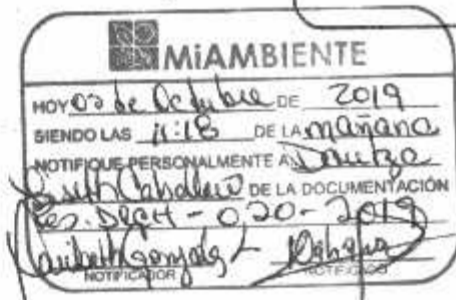 MiAMBIENTE
HOY 03 de Octubre DE 2019
SIENDO LAS 11:18 DE LA mañana
NOTIFIQUE PERSONALMENTE A
Caballero DE LA DOCUMENTACIÓN
Res. DRCH - 020-2019
Maribeth Gonzalez
NOTIFICADOR NOTIFICADO